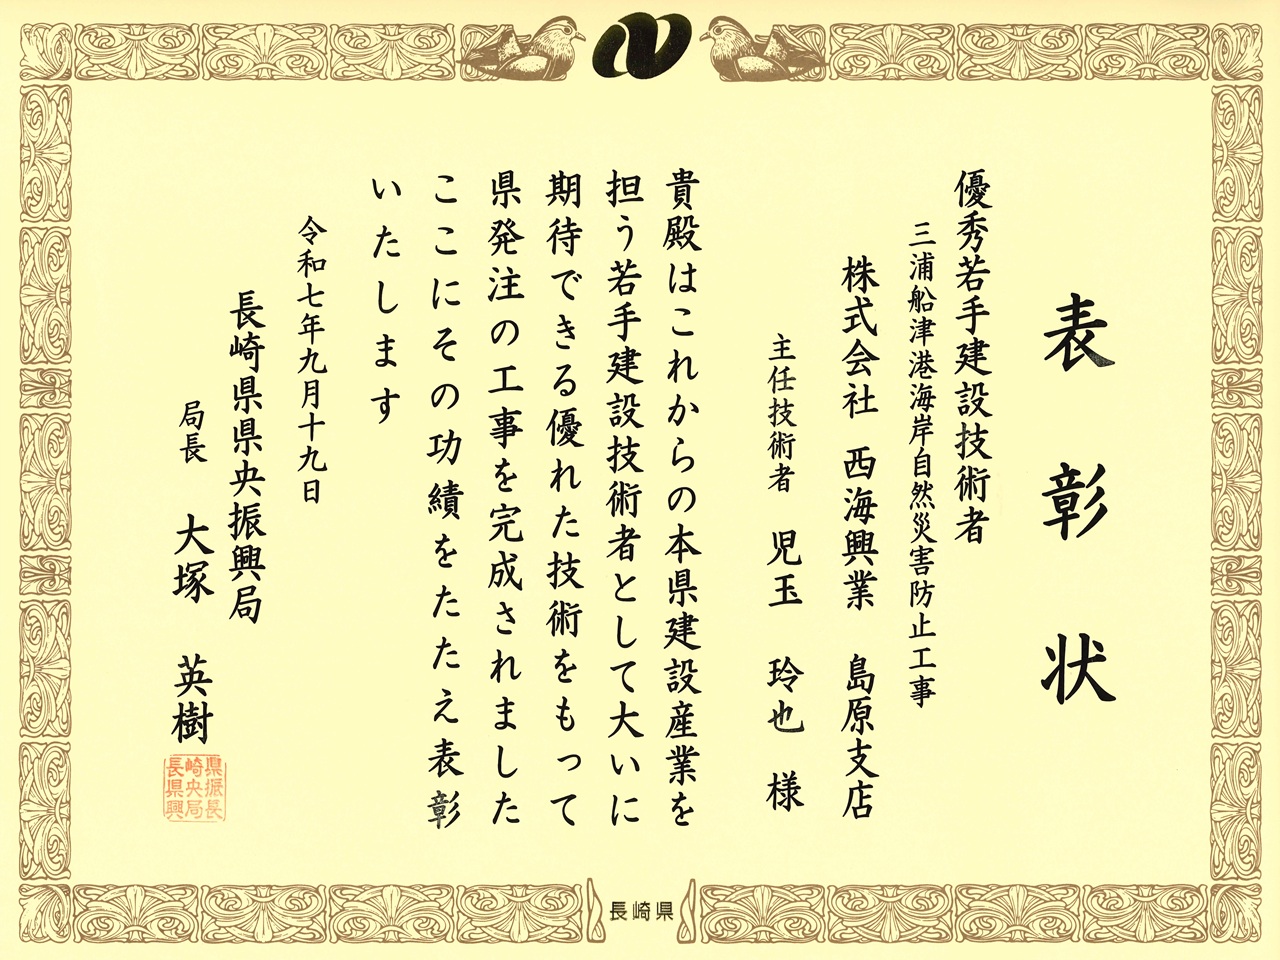 表彰状
優秀若手建設技術者
三浦船津港海岸自然災害防止工事
株式会社 西海興業 島原支店
主任技術者 児玉 玲也 様
貴殿はこれからの本県建設産業を
担う若手建設技術者として大いに
期待できる優れた技術をもって
県発注の工事を完成されました
ここにその功績をたたえ表彰
いたします
令和七年九月十九日
長崎県県央振興局
局長 大塚 英樹
県振長
崎央局
長県興
長崎県